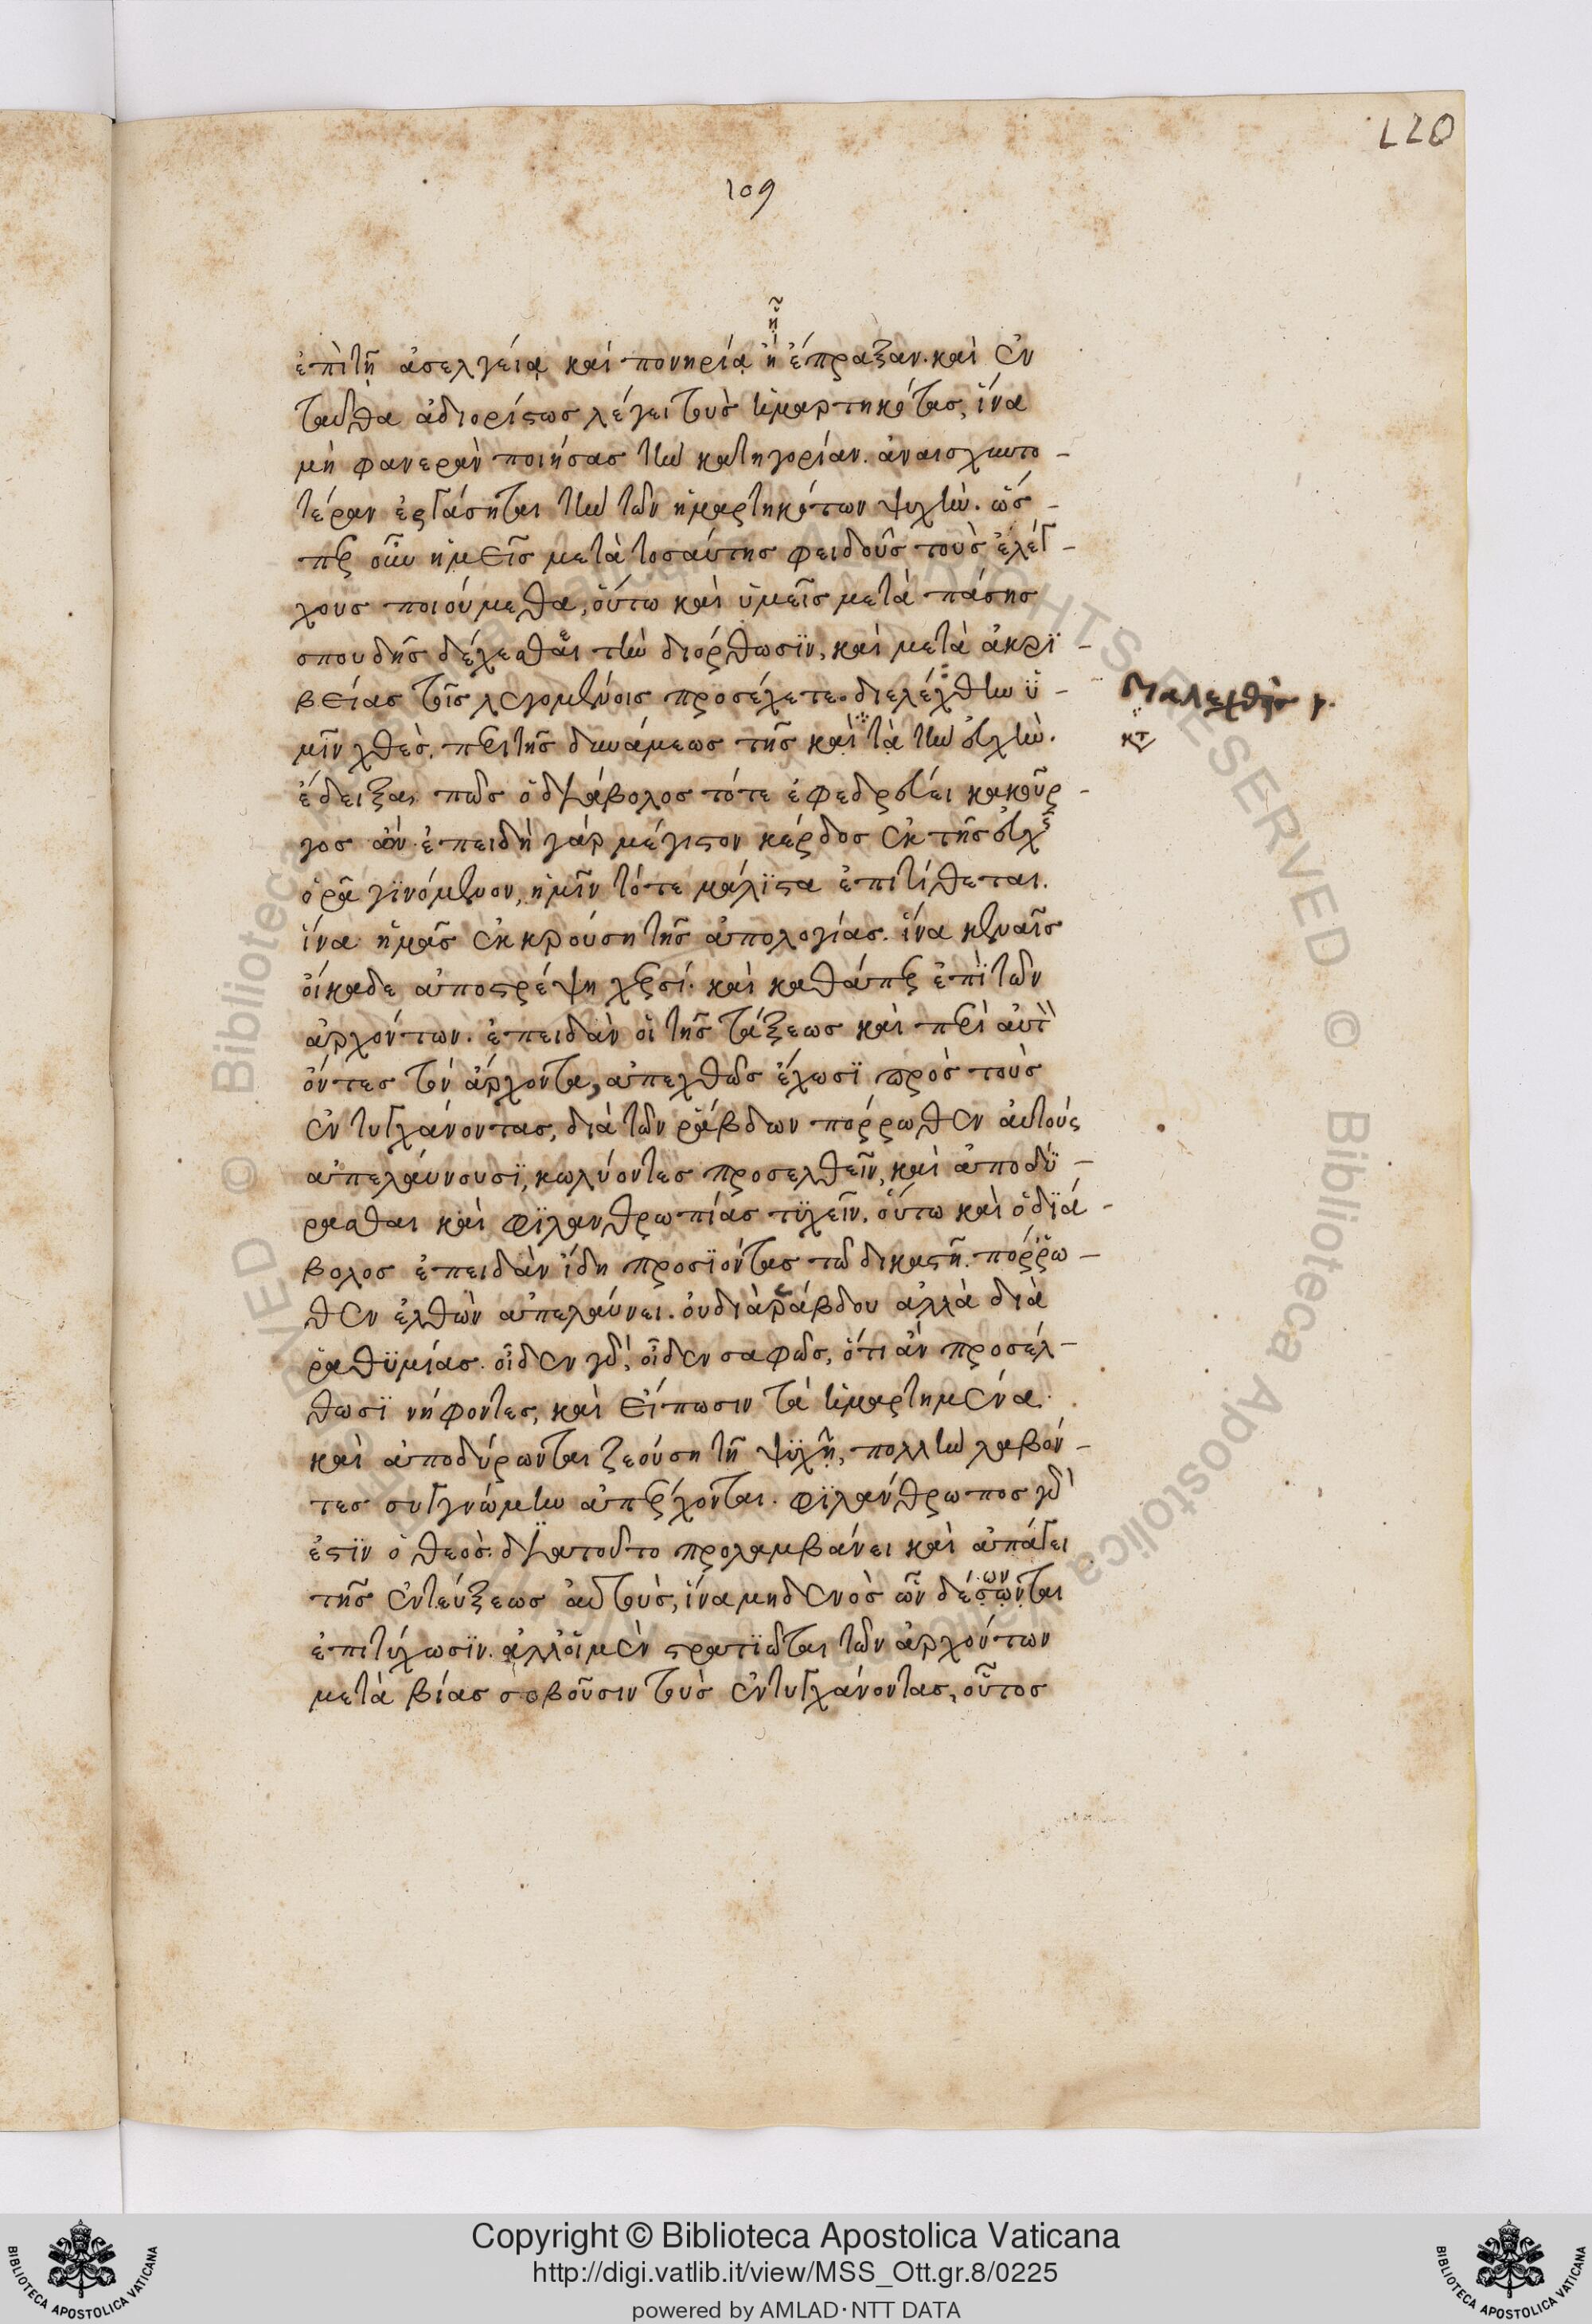 220
109
ᾗ
ἐπὶ τῇ ἀσελγείᾳ καὶ πονηρίᾳ ἣ ἔπραξαν. καὶ ἐν
ταῦθα ἀδιορίστως λέγει τοὺς ἡμαρτηκότας, ἵνα
μὴ φανερὰν ποιήσας τὴν κατηγορίαν. ἀναισχυντο-
τέραν ἐργάσηται τὴν τῶν ἡμαρτηκότων ψυχήν. ὥσ-
περ οὖν ἡμεῖς μετὰ τοσαύτης φειδοῦς τοὺς ἐλέγ-
χους ποιούμεθα, οὕτω καὶ ὑμεῖς μετὰ πάσης
σπουδῆς δέχεσθαι τὴν διόρθωσϊν, καὶ μετὰ ἀκρϊ-
βείας τοῖς λεγομένοις προσέχετε. διελέχθην ὑ-
μῖν χθὲς, περὶ τῆς δυνάμεως τῆς καὶ τὰ τὴν εὐχήν.
ἔδειξα, πῶς ὁ διάβολος τότε ἐφεδρεύει κακοῦρ-
γος ὤν. ἐπειδὴ γὰρ μέγιστον κέρδος ἐκ τῆς εὐχῆς
ὁρᾷ γϊνόμενον, ἡμῖν τότε μάλϊστα ἐπιτίθεται.
ἵνα ἡμᾶς ἐκκρούσῃ τῆς ἀπολογίας. ἵνα κεναῖς
οἴκαδε ἀποστρέψῃ χερσί. καὶ καθάπερ ἐπὶ τῶν
ἀρχόντων. ἐπειδὰν οἱ τῆς τάξεως καὶ περὶ αὐτὸν
ὄντες τὸν ἄρχοντα, ἀπεχθῶς ἔχωσϊ πρὸς τοὺς
ἐντυγχάνοντας, διὰ τῶν ῥάβδων πόρρωθεν αὐτοὺς
ἀπελαύνουσϊ, κωλύοντες προσελθεῖν, καὶ ἀποδϋ-
ρασθαι καὶ φϊλανθρωπίας τϋχεῖν. οὕτω καὶ ὁ δϊά-
βολος ἐπειδὰν ἴδῃ προσϊόντας τῷ δικαστῇ. πόρρω-
θεν ἐλθὼν ἀπελαύνει. οὐ διὰ ῥάβδου ἀλλὰ διὰ
ῥαθϋμίας. οἶδεν γὰρ, οἶδεν σαφῶς, ὅτι ἂν προσέλ-
θωσϊ νήφοντες, καὶ εἴπωσιν τὰ ἡμαρτημένα.
καὶ ἀποδύρωνται ζεούσῃ τῇ ψϋχῇ, πολλὴν λαβόν-
τες συγγνώμην ἀπέρχονται. φϊλάνθρωπος γὰρ
ἐστϊν ὁ θεός. διατοῦτο προλαμβάνει καὶ ἀπάγει
τῆς ἐντεύξεως αὐτοὺς, ἵνα μηδενὸς ὧν δέσωνται
ων
ἐπιτύχωσϊν. ἀλλ' οἱ μὲν στρατϊῶται τῶν ἀρχόντων
μετὰ βίας σοβοῦσιν τοὺς ἐντυγχάνοντας, οὗτος
Copyright © Biblioteca Apostolica Vaticana
http://digi.vatlib.it/view/MSS_Ott.gr.8/0225
powered by AMLAD·NTT DATA
BIBLIOTECA APOSTOLICA VATICANA
BIBLIOTECA APOSTOLICA VATICANA